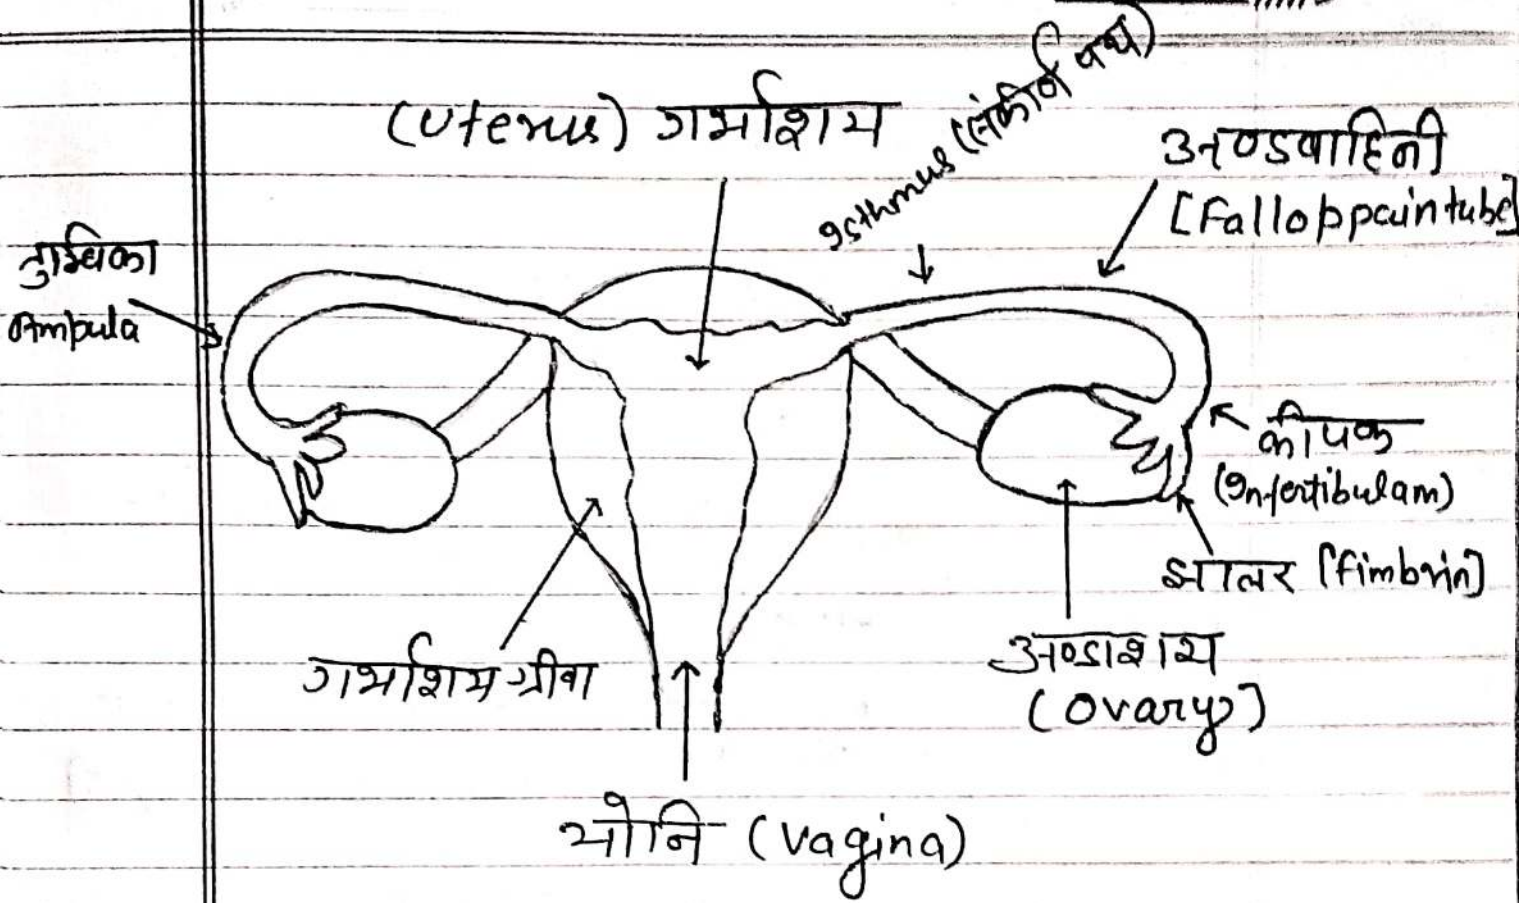 (Uterus) गर्भाशय
Isthmus (संकीर्ण पथ)
अण्डवाहिनी
[Falloppain tube]
तुम्बिका
Ampula
कीपक
(Infertibulam)
झालर [fimbrin]
गर्भाशय ग्रीवा
अण्डाशय
(Ovary)
योनि (vagina)